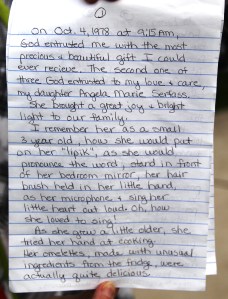 1
On Oct. 4, 1978 at 9:15 AM,
God entrusted me with the most
precious & beautiful gift I could
ever recieve. The second one of
three God entrusted to my love & care,
my daughter Angela Marie Sertass.
She brought a great joy & bright
light to our family.
I remember her as a small
3 year old, how she would put
on her "lipik", as she would
pronounce the word, stand in front
of her bedroom mirror, her hair
brush held in her little hand,
as her microphone & sing her
little heart out loud. Oh, how
she loved to sing!
As she grew a little older, she
tried her hand at cooking.
Her omelettes, made with unusual
ingredients from the fridge, were
actually quite delicious.